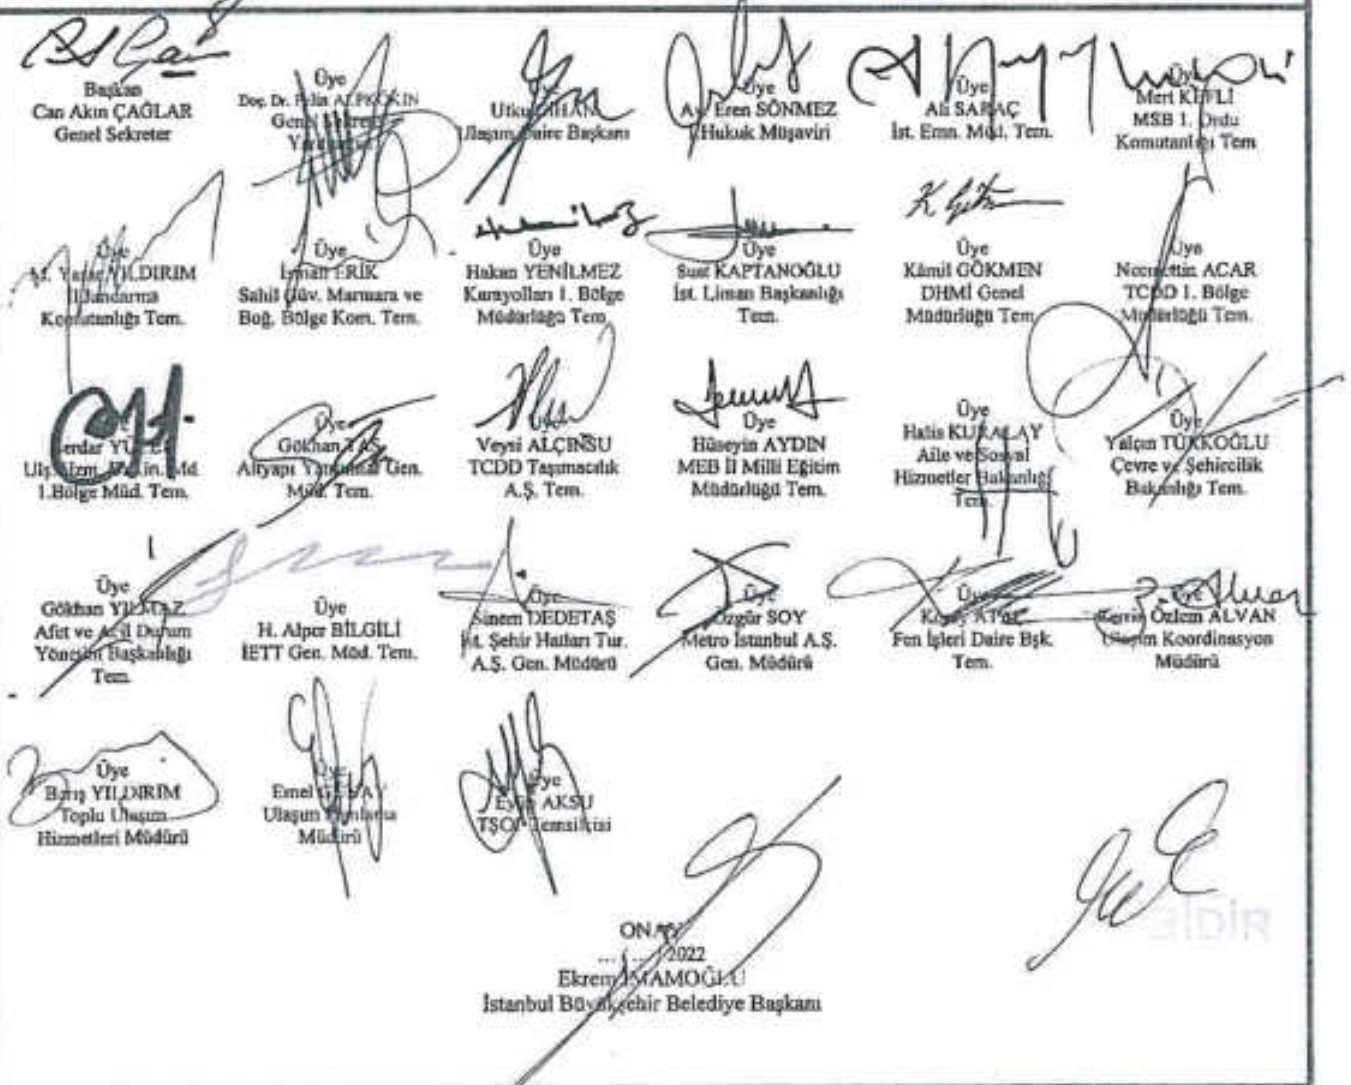 Başkan
Can Akın ÇAĞLAR
Genel Sekreter
Üye
Doç. Dr. Pelin ALPKÖKİN
Genel Sekreter
Üye
Utku CİHAN
Ulaşım Daire Başkanı
Üye
Av. Eren SÖNMEZ
Hukuk Müşaviri
Üye
Ali SARAÇ
İst. Emn. Müd. Tem.
Üye
Mert KEFLİ
MSB 1. Ordu
Komutanlığı Tem
Üye
YILDIRIM
İl Jandarma
Komutanlığı Tem.
Üye
İsmail ERİK
Sahil Güv. Marmara ve
Boğ. Bölge Kom. Tem.
Üye
Hakan YENİLMEZ
Karayolları 1. Bölge
Müdürlüğü Tem
Üye
Suat KAPTANOĞLU
İst. Liman Başkanlığı
Tem.
Üye
Kâmil GÖKMEN
DHMİ Genel
Müdürlüğü Tem
Üye
Necmettin ACAR
TCDD 1. Bölge
Müdürlüğü Tem.
1.Bölge Müd. Tem.
Üye
Gökhan TAŞ
Altyapı Gen.
Müd. Tem.
Üye
Veysi ALÇINSU
TCDD Taşımacılık
A.Ş. Tem.
Üye
Hüseyin AYDIN
MEB İl Milli Eğitim
Müdürlüğü Tem.
Üye
Halis KURALAY
Aile ve Sosyal
Hizmetler Bakanlığı
Tem.
Üye
Yalçın TÜRKOĞLU
Çevre ve Şehircilik
Bakanlığı Tem.
Üye
Gökhan YILMAZ
Afet ve Acil Durum
Yönetim Başkanlığı
Tem.
Üye
H. Alper BİLGİLİ
İETT Gen. Müd. Tem.
Üye
Sinem DEDETAŞ
İst. Şehir Hatları Tur.
A.Ş. Gen. Müdürü
Üye
Özgür SOY
Metro İstanbul A.Ş.
Gen. Müdürü
Üye
Fen İşleri Daire Bşk.
Tem.
Üye
Özlem ALVAN
Ulaşım Koordinasyon
Müdürü
Üye
Barış YILDIRIM
Toplu Ulaşım
Hizmetleri Müdürü
Üye
Emel
Ulaşım Planlama
Müdürü
Üye
AKSU
TŞOF Temsilcisi
ONAY
2022
Ekrem İMAMOĞLU
İstanbul Büyükşehir Belediye Başkanı